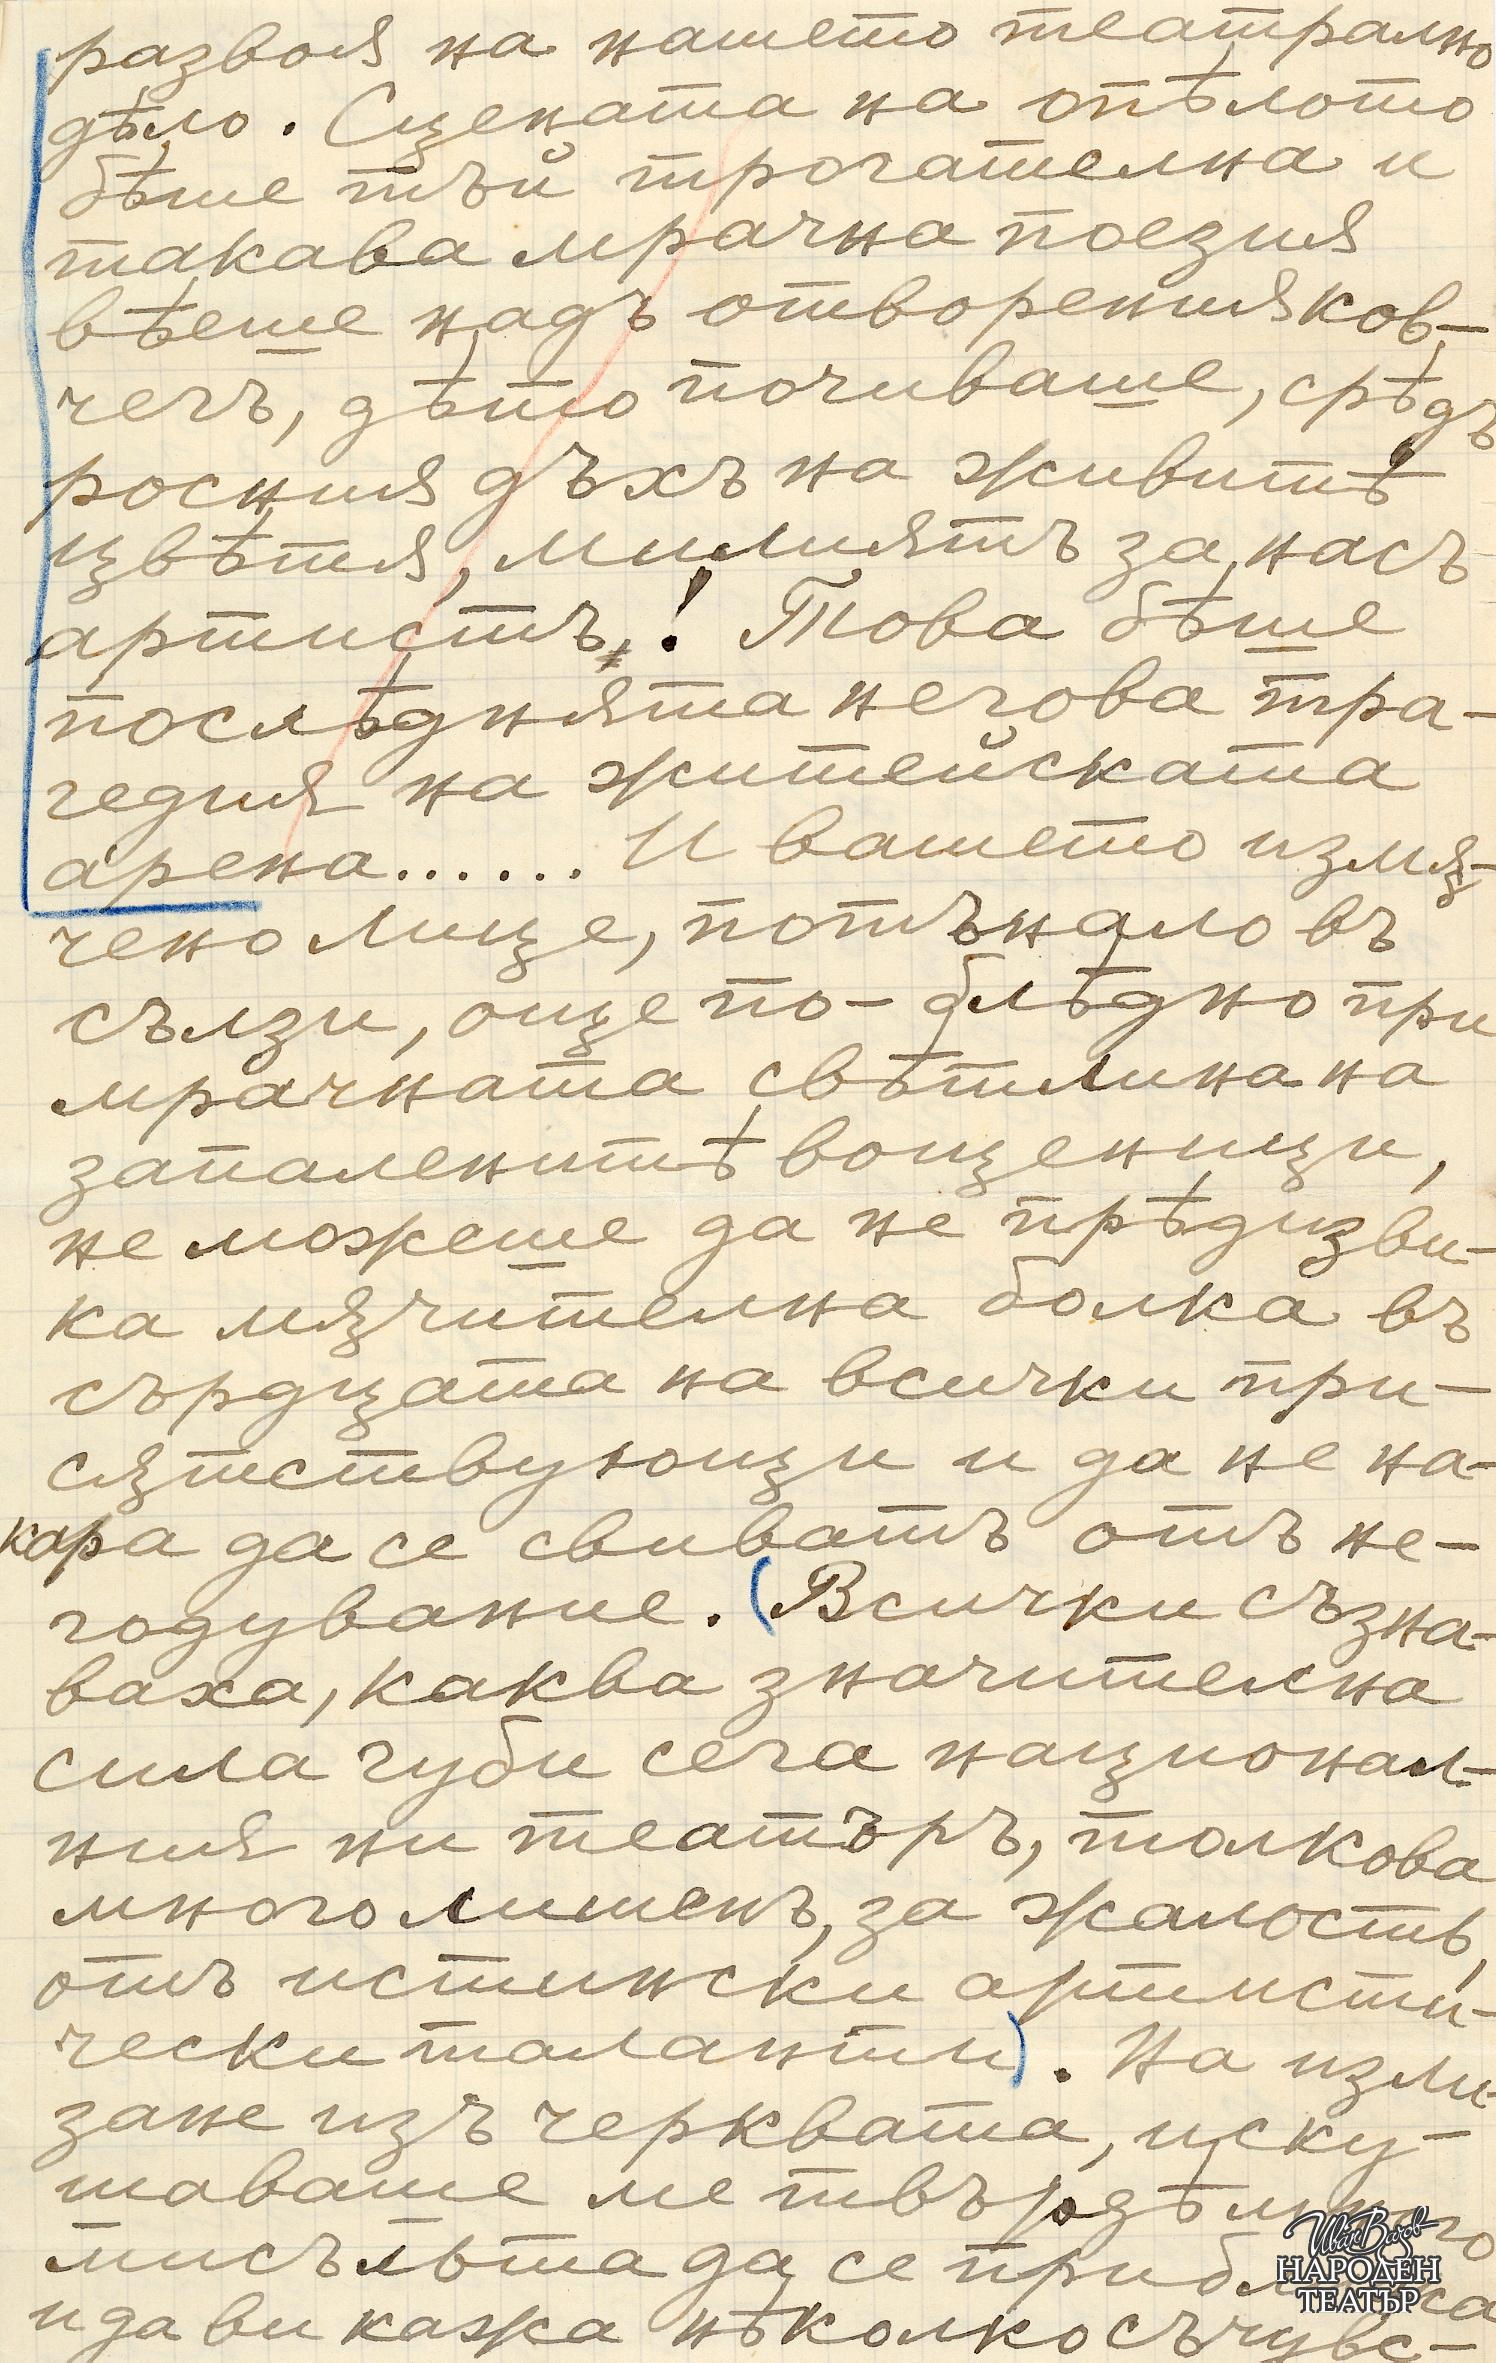 развоя на нашето театрално
дѣло. Сцената на опѣлото
бѣше тъй трогателна и
такава мрачна поезия
вѣеше надъ отворения ков-
чегъ, дѣто почиваше, срѣдъ
росния дъхъ на живитѣ
цвѣтя, милиятъ за насъ
артистъ! Това бѣше
послѣднята негова тра-
гедия на житейската
арена...... И вашето измѫ-
чено лице, потънало въ
сълзи, още по-блѣдно при
мрачната свѣтлина на
запаленитѣ вощеници,
не можеше да не прѣдизви-
ка мѫчителна болка въ
сърдцата на всички при-
сѫтствующи и да не на-
кара да се свиватъ отъ не-
годувание. (Всички съзна-
ваха, каква значителна
сила губи сега национал-
ния ни театъръ, толкова
много лишенъ, за жалость,
отъ истински артисти-
чески таланти). На изли-
зане изъ черквата, иску-
шаваше ме твърдѣ много
мисъльта да се приближа
и да ви кажа нѣколко съчувс-
Иван Вазов
НАРОДЕН
ТЕАТЪР